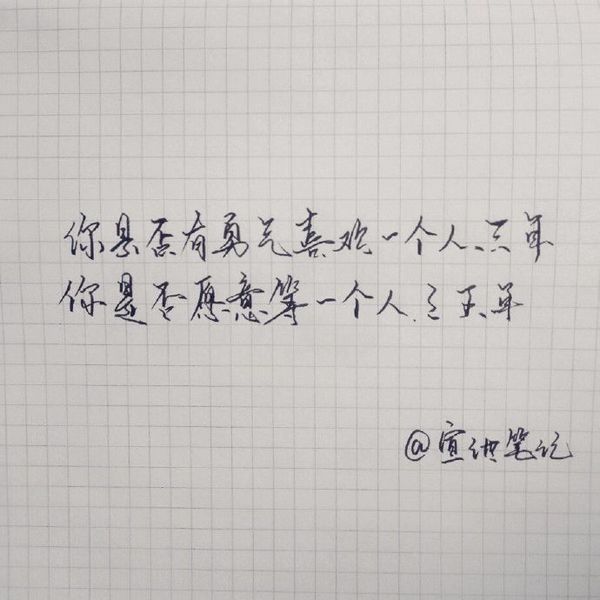 你是否有勇气喜欢一个人三年
你是否愿意等一个人三五年
@宣洪笔记